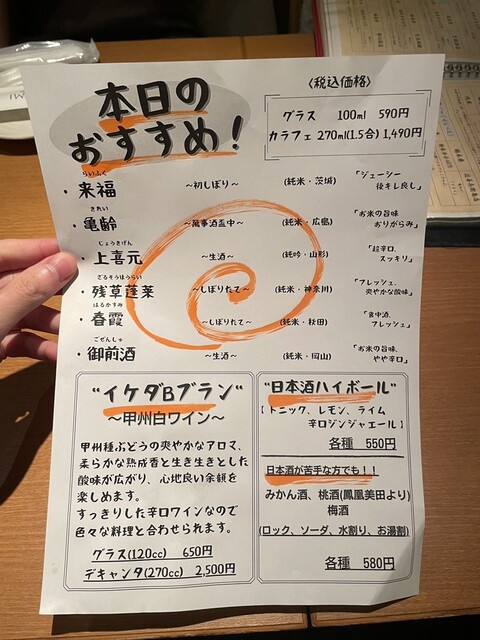 本日の
おすすめ!
〈税込価格〉
グラス 100ml 590円
カラフェ 270ml(1.5合) 1,490円
らいふく
・来福 ～初しぼり～ (純米・茨城) 「ジューシー
後キレ良し」
きれい
・亀齢 ～萬事酒盃中～ (純米・広島) 「お米の旨味
おりがらみ」
じょうきげん
・上喜元 ～生酒～ (純吟・山形) 「超辛口、
スッキリ」
ざるそうほうらい
・残草蓬莱 ～しぼりたて～ (純米・神奈川) 「フレッシュ、
爽やかな酸味」
はるかすみ
・春霞 ～しぼりたて～ (純米・秋田) 「食中酒、
フレッシュ」
ごぜんしゅ
・御前酒 ～生酒～ (純米・岡山) 「お米の旨味、
やや辛口」
"イケダBブラン"
～甲州白ワイン～
甲州種ぶどうの爽やかなアロマ、
柔らかな熟成香と生き生きとした
酸味が広がり、心地良い余韻を
楽しめます。
すっきりした辛口ワインなので
色々な料理と合わせられます。
グラス(120cc) 650円
デキャンタ(270cc) 2,500円
"日本酒ハイボール"
【トニック、レモン、ライム
辛口ジンジャエール】
各種 550円
日本酒が苦手な方でも！！
みかん酒、桃酒(鳳凰美田より)
梅酒
(ロック、ソーダ、水割り、お湯割)
各種 580円